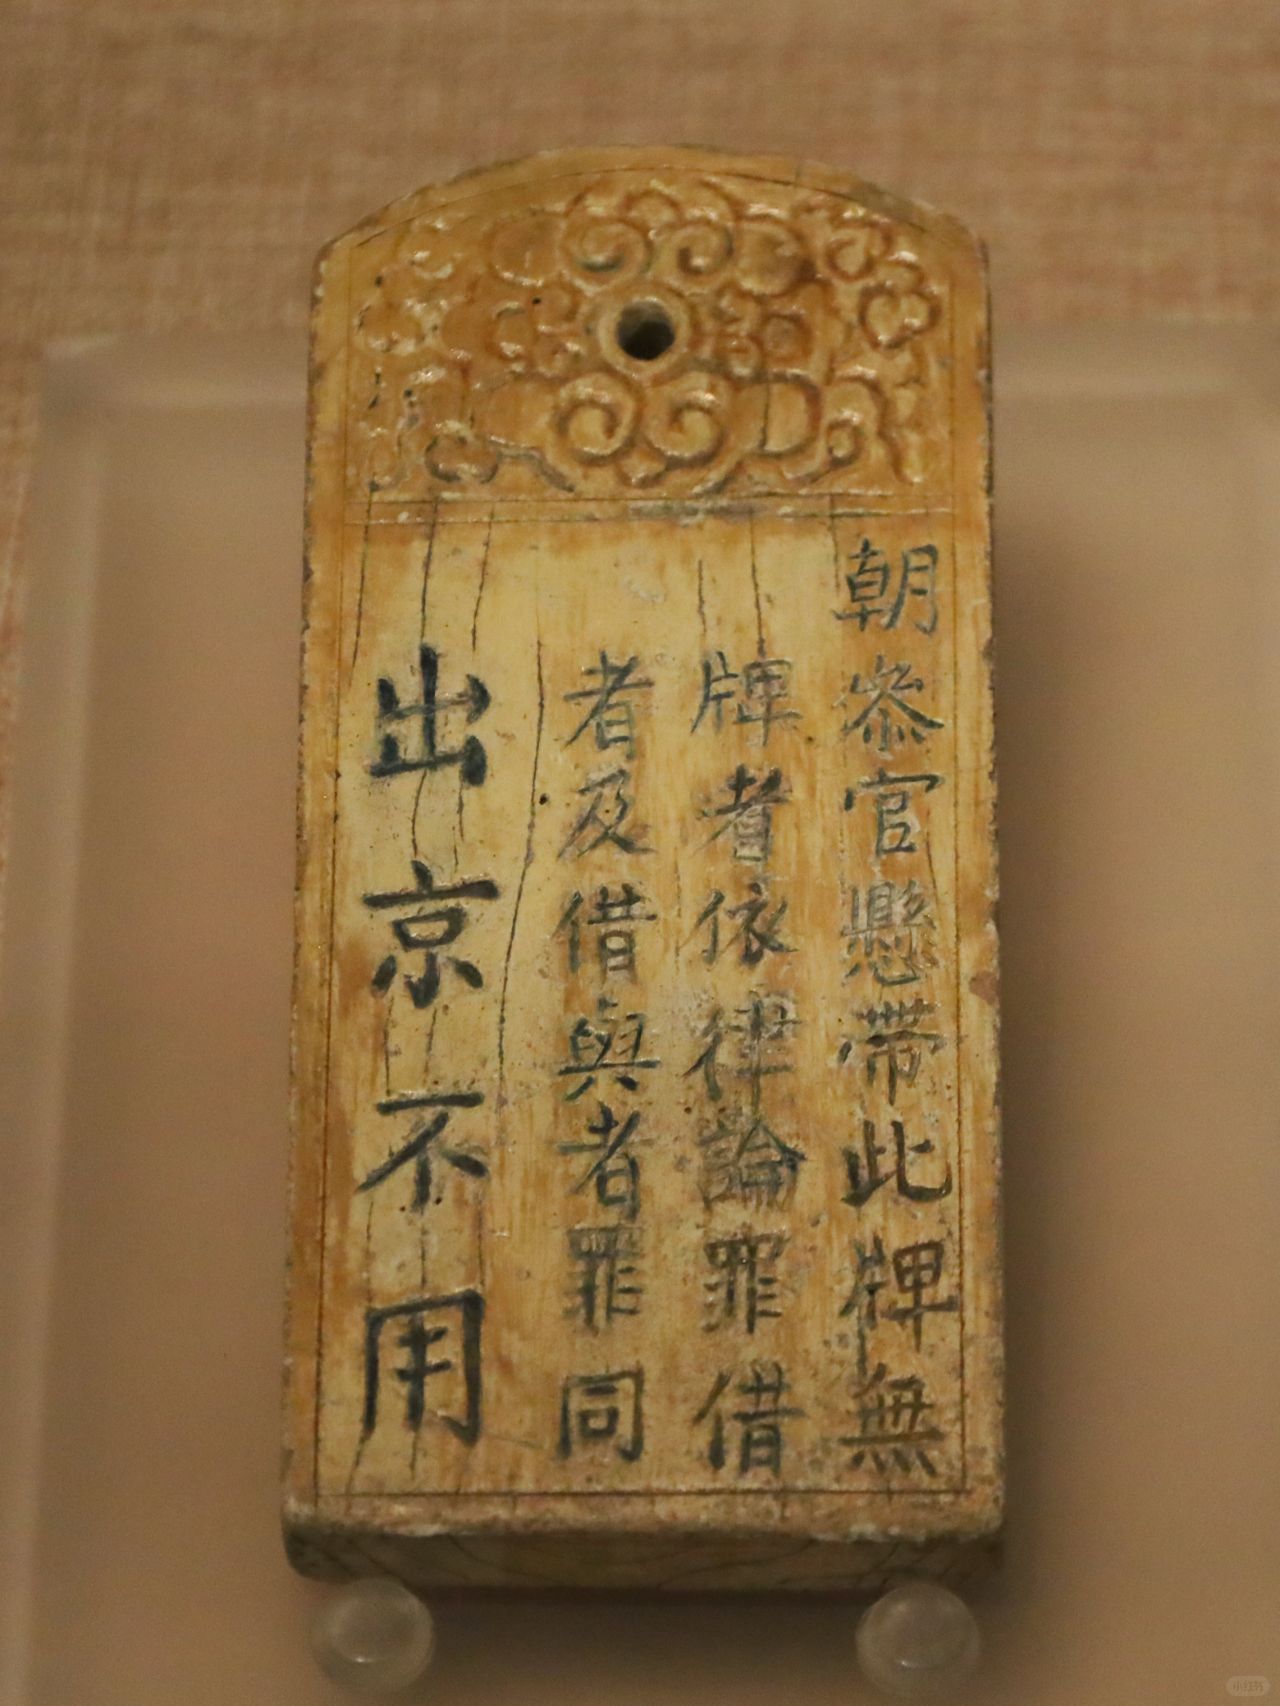 朝參官懸帶此牌無
牌者依律論罪借
者及借與者罪同
出京不用
小红书